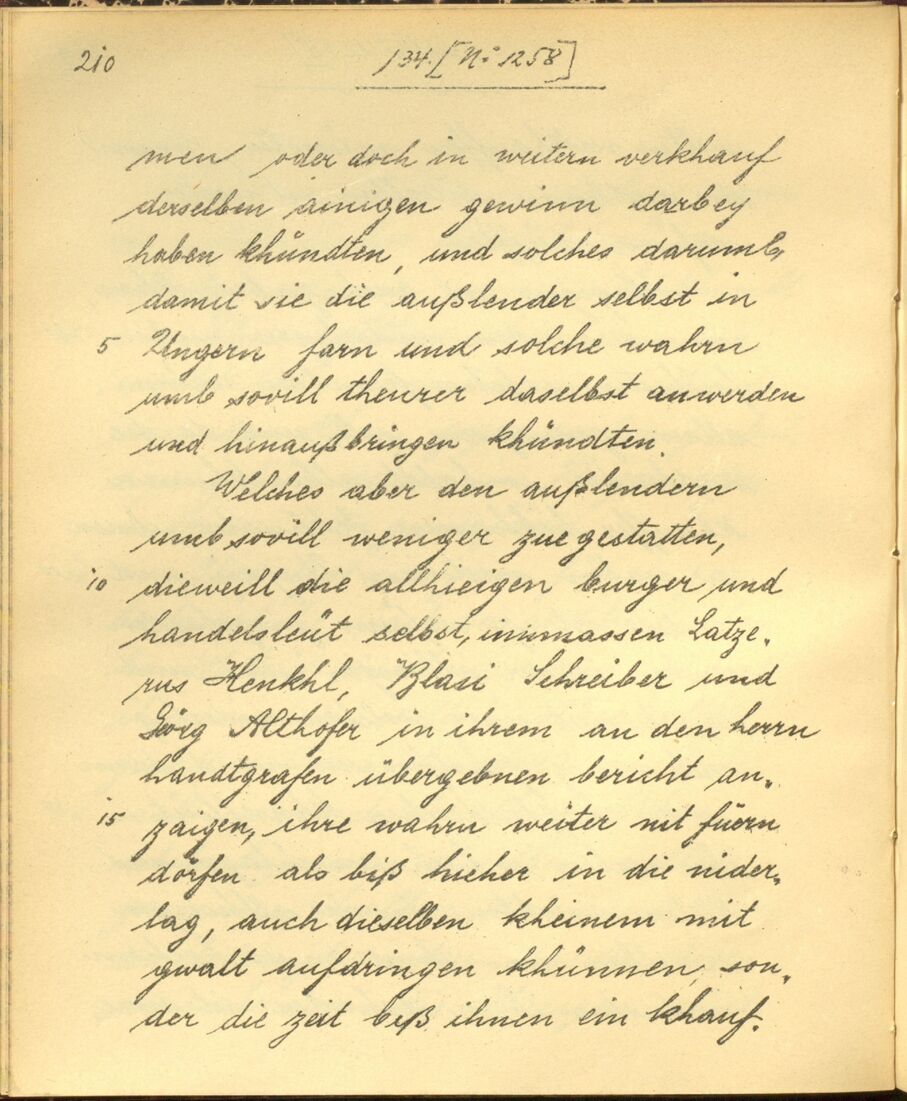 210
134. [No 1258]
men oder doch in weitern verkhauf
derselben ainigen gewinn darbey
haben khündten, und solches darumb,
damit sie die außlender selbst in
5 Ungern farn und solche wahrn
umb sovill theurer daselbst anwerden
und hinaußbringen khündten.
Welches aber den außlendern
umb sovill weniger zue gestatten,
10 dieweill die allhieigen burger und
handelsleüt selbst, inmassen Latze-
rus Henkhl, Blasi Schreiber und
Geörg Althofer in ihrem an den herrn
handtgrafen übergebnen bericht an-
15 zaigen, ihre wahrn weiter nit füern
dörfen als biß hieher in die nider-
lag, auch dieselben kheinem mit
gwalt aufdringen khünnen, son-
der die zeit biß ihnen ein khauf-